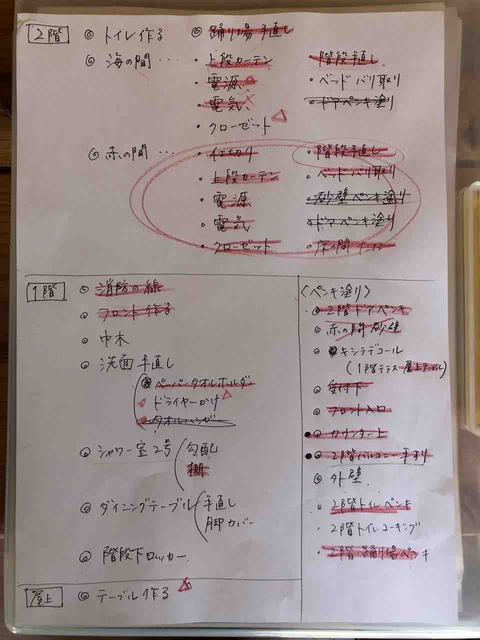 2階
◎ トイレ作る
◎ 踊り場手直し
◎ 海の間 ・・・
・上段カーテン
・電源
・電気
・クローゼット △
・階段手直し
・ベッド バリ取り
・ドアペンキ塗り
◎ 赤の間 ・・・
・仕切り
・上段カーテン
・電源
・電気
・クローゼット
・階段手直し
・ベッド バリ取り
・砂壁ペンキ塗り
・ドアペンキ塗り
・床の間
1階
◎ 消防の線
◎ フロント作る
◎ 中木
◎ 洗面手直し
ペーパータオルホルダー
ドライヤーかけ △
タオルハンガー
◎ シャワー室2号
勾配
棚
◎ ダイニングテーブル
手直し
脚カバー
◎ 階段下ロッカー
〈ペンキ塗り〉
◎ 2階ドアペンキ
◎ 赤の間 砂壁
◎ キシラデコール
(1階テラス・屋上テーブル)
◎ 受付下
◎ フロント入口
● カウンター上
● 2階バルコニー手すり
◎ 外壁
◎ 2階トイレペンキ
・2階トイレコーキング
・2階踊り場ペンキ
屋上
◎ テーブル作る △